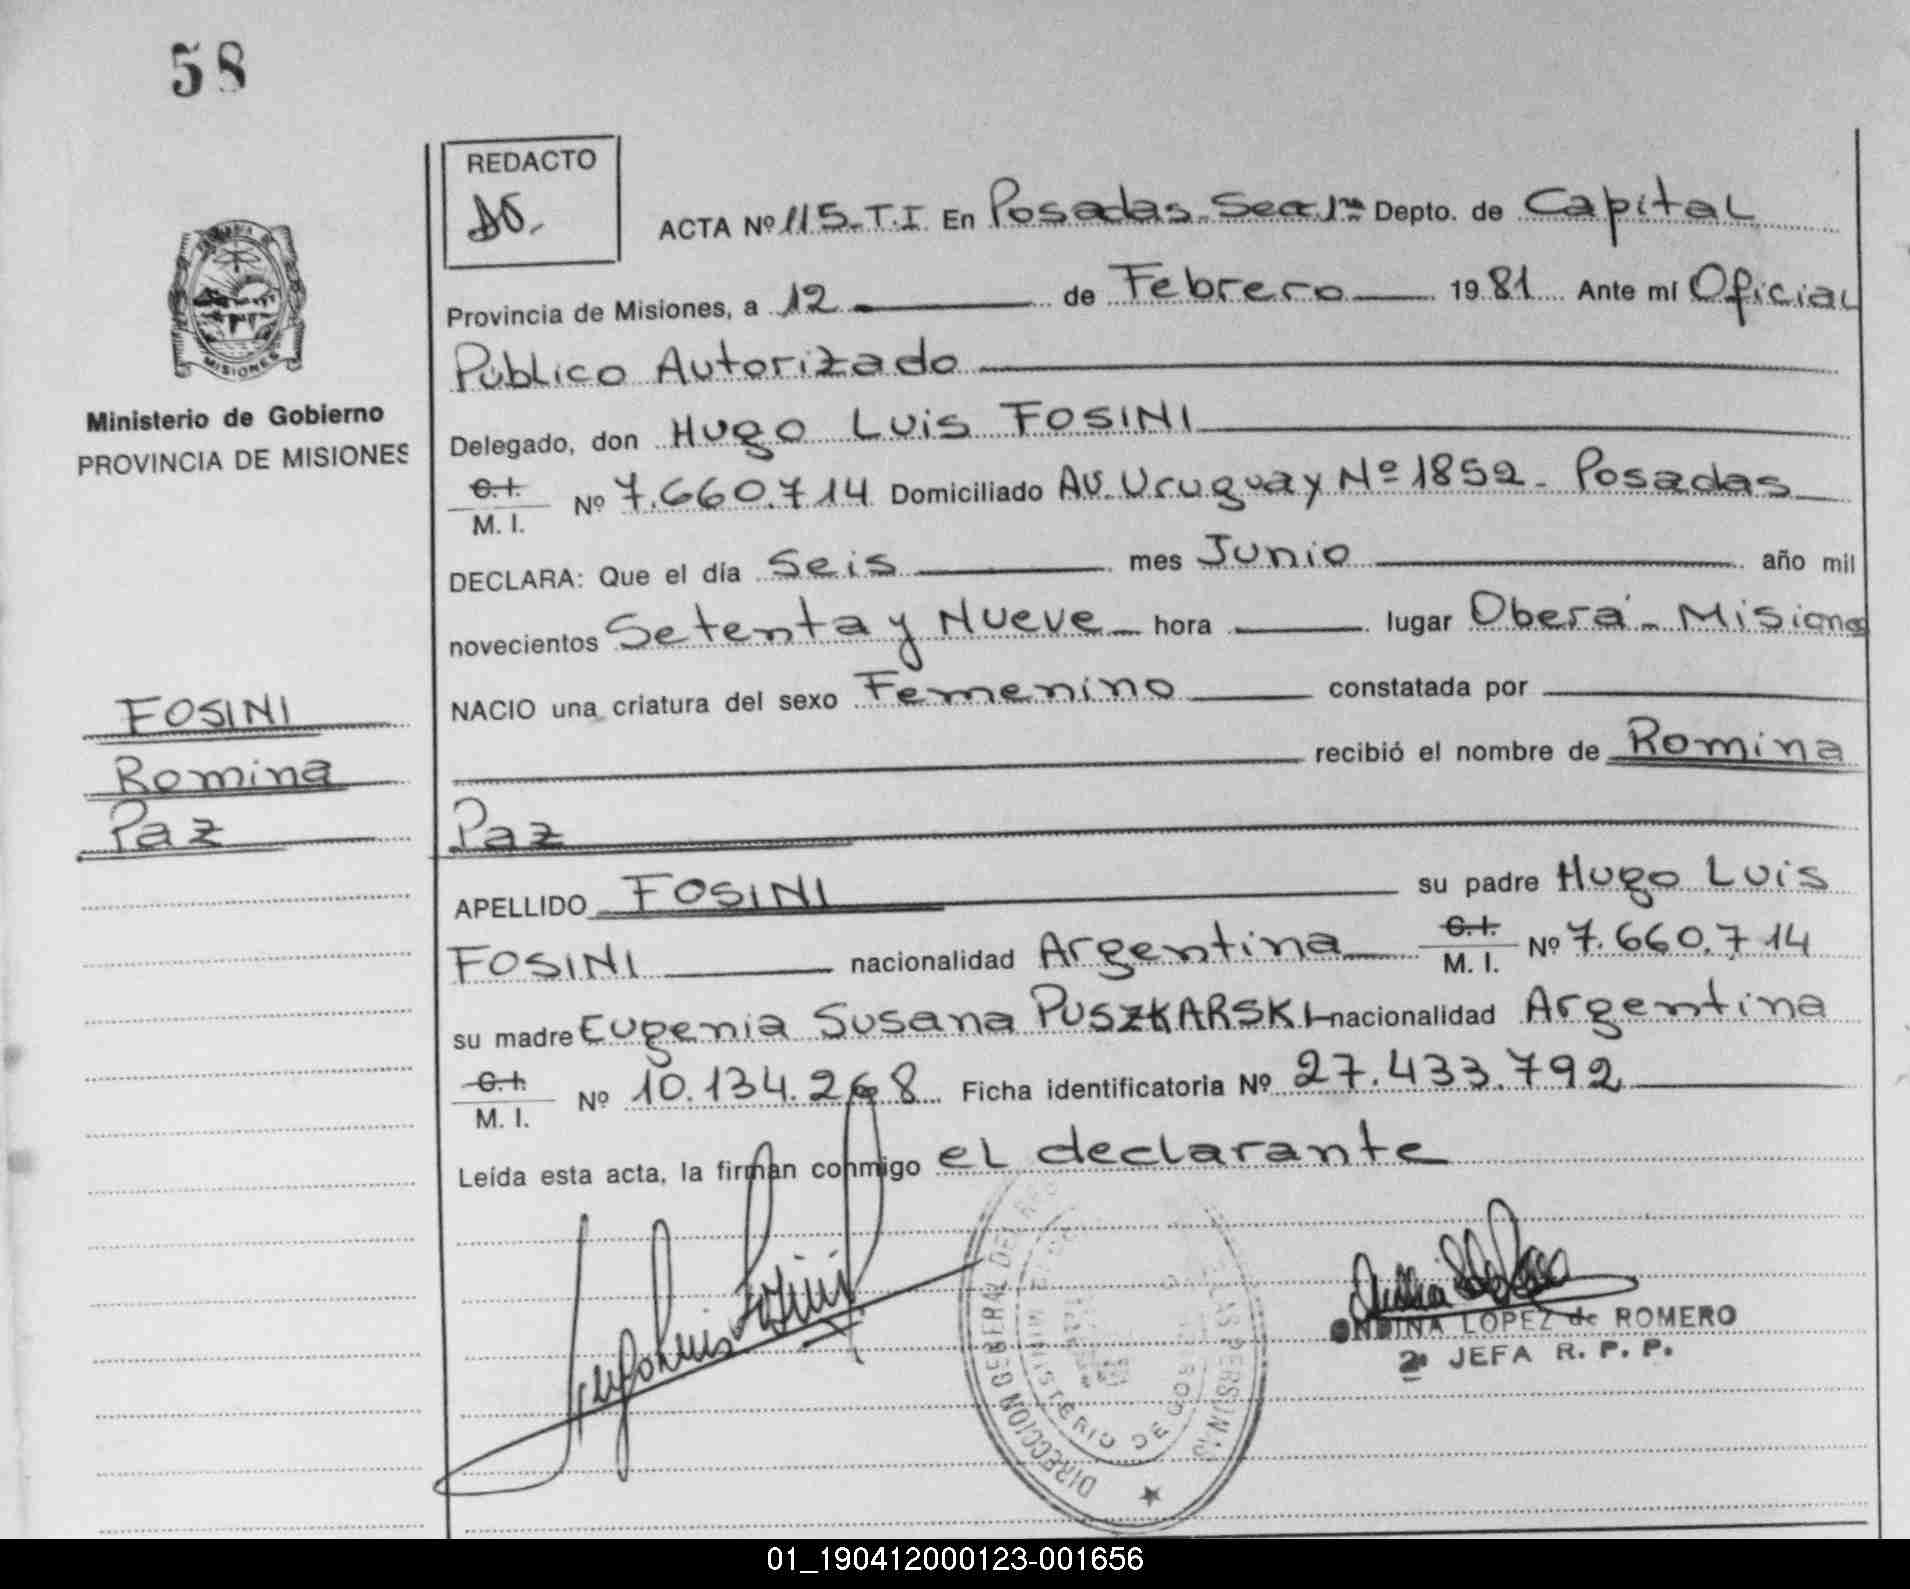 58
REDACTO
ACTA Nº 115-T.I En Posadas-Sec 1ra Depto. de Capital
MISIONES
Provincia de Misiones, a 12 de Febrero 1981 Ante mí Oficial
Público Autorizado
Ministerio de Gobierno
PROVINCIA DE MISIONES
Delegado, don Hugo Luis FOSINI
C.I.
M. I. Nº 7.660.714 Domiciliado Av. Uruguay Nº 1852 - Posadas
DECLARA: Que el día Seis mes Junio año mil
novecientos Setenta y Nueve hora lugar Oberá - Misiones
NACIO una criatura del sexo Femenino constatada por
FOSINI
Romina
Paz
recibió el nombre de Romina
Paz
APELLIDO FOSINI su padre Hugo Luis
FOSINI nacionalidad Argentina C.I. M. I. Nº 7.660.714
su madre Eugenia Susana PUSZKARSKI nacionalidad Argentina
C.I.
M. I. Nº 10.134.268 Ficha identificatoria Nº 27.433.792
Leída esta acta, la firman conmigo el declarante
Hugo Luis Fosini
DIRECCION GENERAL DEL REG LAS PERSONAS
MINISTERIO DE GOBI
ONDINA LOPEZ de ROMERO
2ª JEFA R. P. P.
01_190412000123-001656